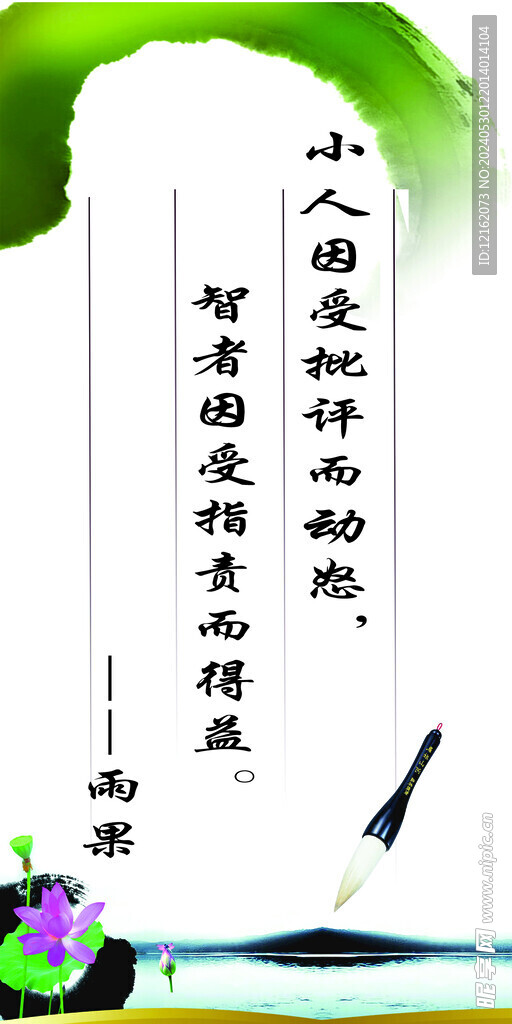 小人因受批评而动怒，
智者因受指责而得益。
——雨果
ID:12162073 NO:20240530122014014104
昵享网 www.nipic.cn